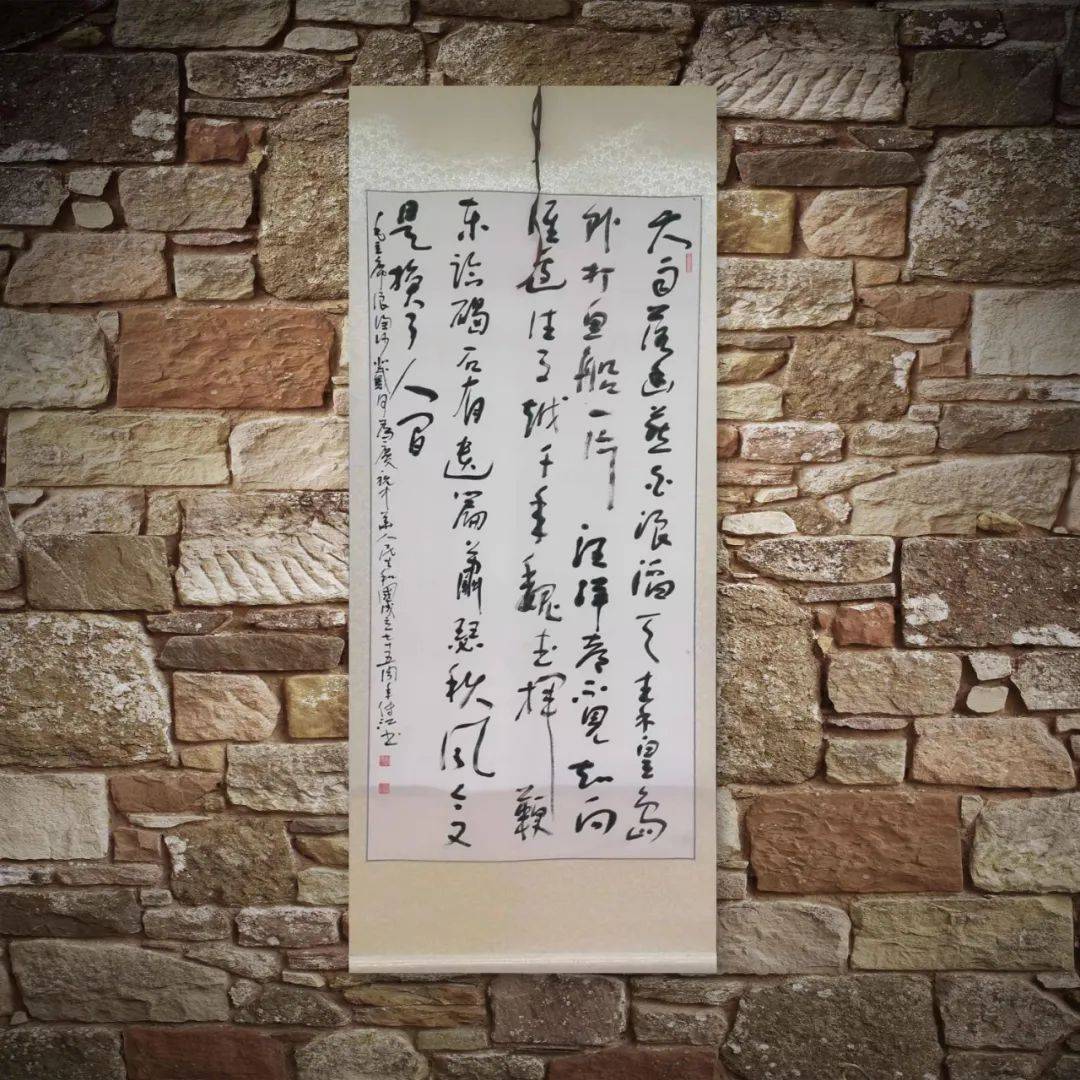 大雨落幽燕白浪滔天秦皇岛
外打鱼船一片汪洋都不见知向
谁边往事越千年魏武挥鞭
东临碣石有遗篇萧瑟秋风今又
是换了人间
毛主席浪淘沙北戴河为庆祝中华人民共和國成立七十五周年江书